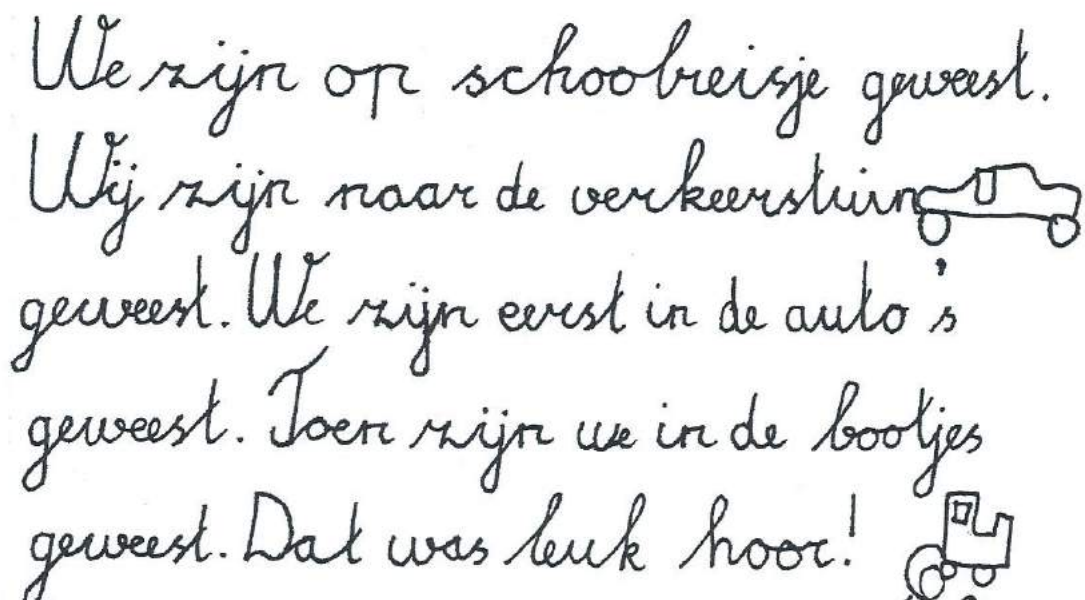 We zijn op schoolreisje geweest.
Wij zijn naar de verkeerstuin
geweest. We zijn eerst in de auto's
geweest. Toen zijn we in de bootjes
geweest. Dat was leuk hoor!